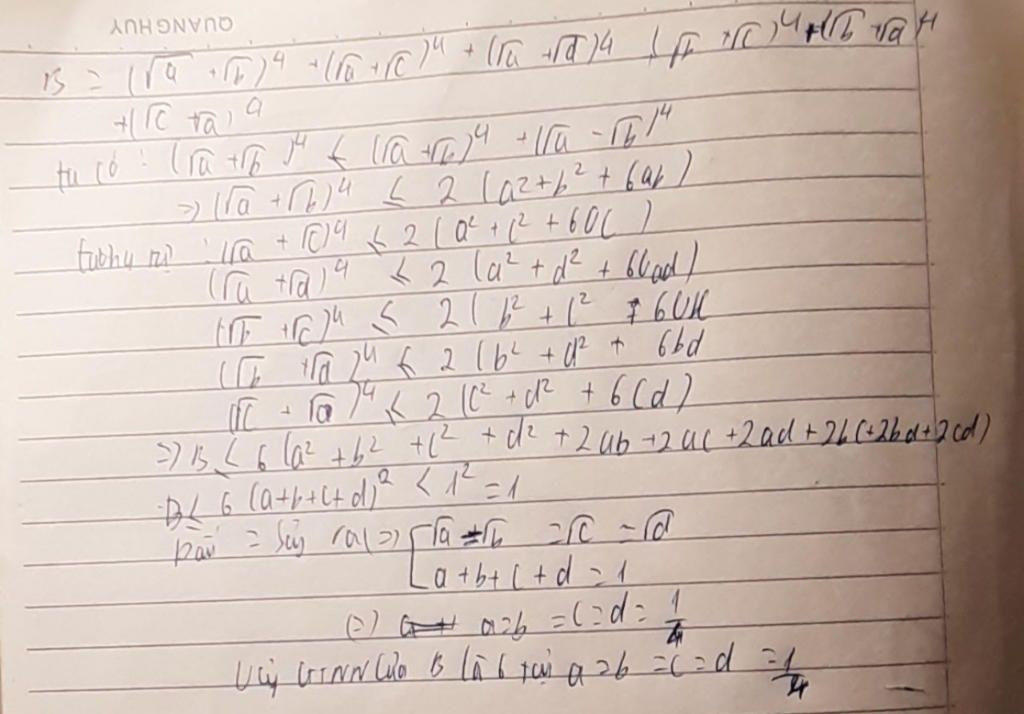 QUANGHUY
B = (√a + √b)⁴ + (√a + √c)⁴ + (√a + √d)⁴ (√b + √c)⁴ + (√b + √d)⁴
+ (√c + √d)⁴
ta có : (√a + √b)⁴ ≤ (√a + √b)⁴ + (√a - √b)⁴
=> (√a + √b)⁴ ≤ 2 (a² + b² + 6ab)
: (√a + √c)⁴ ≤ 2 (a² + c² + 6ac)
(√a + √d)⁴ ≤ 2 (a² + d² + 6ad)
(√b + √c)⁴ ≤ 2 (b² + c² + 6bc
(√b + √d)⁴ ≤ 2 (b² + d² + 6bd
(√c + √d)⁴ ≤ 2 (c² + d² + 6cd)
=> B ≤ 6 (a² + b² + c² + d² + 2ab + 2ac + 2ad + 2bc + 2bd + 2cd)
B ≤ 6 (a+b+c+d)² < 1² = 1
Dấu = xảy ra (=> [√a = √b = √c = √d
a + b + c + d = 1
(=) a = b = c = d = 1/4
Vậy GTNN của B là 6 tại a = b = c = d = 1/4